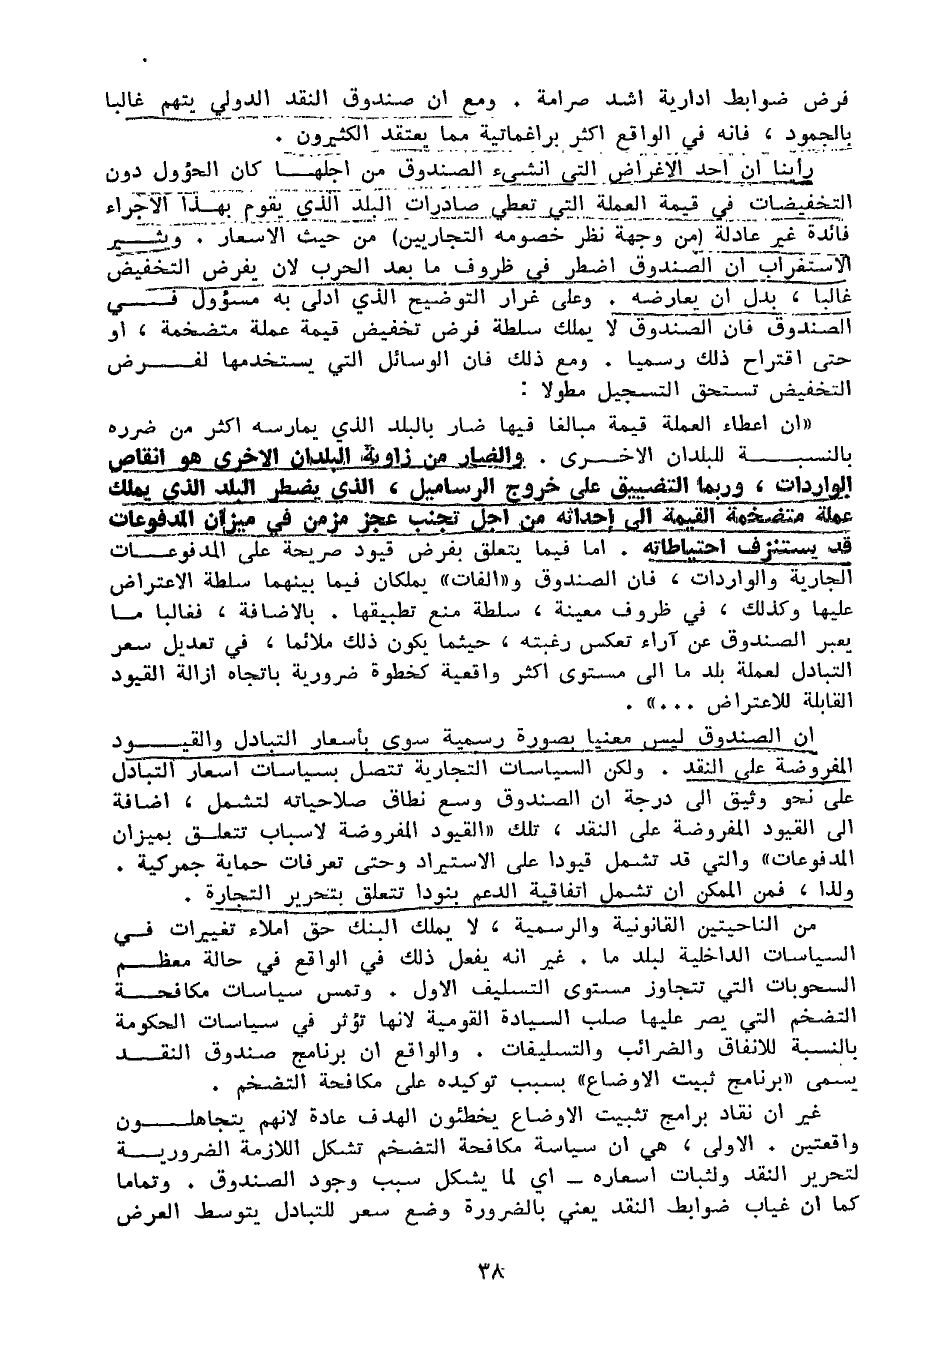 فرض ضوابط ادارية اشد صرامة . ومع ان صندوق النقد الدولي يتهم غالبا
بالجمود ، فانه في الواقع اكثر براغماتية مما يعتقد الكثيرون .
رأينا ان احد الاغراض التي انشىء الصندوق من اجلهـــا كان الحؤول دون
التخفيضات في قيمة العملة التي تعطي صادرات البلد الذي يقوم بهـذا الاجراء
فائدة غير عادلة (من وجهة نظر خصومه التجاريين) من حيث الاسعار . ويثـــير
الاستغراب ان الصندوق اضطر في ظروف ما بعد الحرب لان يفرض التخفيض
غالبا ، بدل ان يعارضه . وعلى غرار التوضيح الذي ادلى به مسؤول فــــي
الصندوق فان الصندوق لا يملك سلطة فرض تخفيض قيمة عملة متضخمة ، او
حتى اقتراح ذلك رسميا . ومع ذلك فان الوسائل التي يستخدمها لفـــرض
التخفيض تستحق التسجيل مطولا :
«ان اعطاء العملة قيمة مبالغا فيها ضار بالبلد الذي يمارسه اكثر من ضرره
بالنسبـــــة للبلدان الاخـــرى . والضار من زاوية البلدان الاخرى هو انقاص
الواردات ، وربما التضييق على خروج الرساميل ، الذي يضطر البلد الذي يملك
عملة متضخمة القيمة الى إحداثه من اجل تجنب عجز مزمن في ميزان المدفوعات
قد يستنزف احتياطاته . اما فيما يتعلق بفرض قيود صريحة على المدفوعـــات
الجارية والواردات ، فان الصندوق و«الغات» يملكان فيما بينهما سلطة الاعتراض
عليها وكذلك ، في ظروف معينة ، سلطة منع تطبيقها . بالاضافة ، فغالبا مــا
يعبر الصندوق عن آراء تعكس رغبته ، حيثما يكون ذلك ملائما ، في تعديل سعر
التبادل لعملة بلد ما الى مستوى اكثر واقعية كخطوة ضرورية باتجاه ازالة القيود
القابلة للاعتراض ...» .
ان الصندوق ليس معنيا بصورة رسمية سوى بأسعار التبادل والقيـــود
المفروضة على النقد . ولكن السياسات التجارية تتصل بسياسات اسعار التبادل
على نحو وثيق الى درجة ان الصندوق وسع نطاق صلاحياته لتشمل ، اضافة
الى القيود المفروضة على النقد ، تلك «القيود المفروضة لاسباب تتعلـق بميزان
المدفوعات» والتي قد تشمل قيودا على الاستيراد وحتى تعرفات حماية جمركية .
ولذا ، فمن الممكن ان تشمل اتفاقية الدعم بنودا تتعلق بتحرير التجارة .
من الناحيتين القانونية والرسمية ، لا يملك البنك حق املاء تغييرات فــي
السياسات الداخلية لبلد ما . غير انه يفعل ذلك في الواقع في حالة معظـــم
السحوبات التي تتجاوز مستوى التسليف الاول . وتمس سياسات مكافحـــة
التضخم التي يصر عليها صلب السيادة القومية لانها تؤثر في سياسات الحكومة
بالنسبة للانفاق والضرائب والتسليفات . والواقع ان برنامج صندوق النقــد
يسمى «برنامج ثبيت الاوضاع» بسبب توكيده على مكافحة التضخم .
غير ان نقاد برامج تثبيت الاوضاع يخطئون الهدف عادة لانهم يتجاهلـــون
واقعتين . الاولى ، هي ان سياسة مكافحة التضخم تشكل اللازمة الضروريـــة
لتحرير النقد ولثبات اسعاره ــ اي لما يشكل سبب وجود الصندوق . وتماما
كما ان غياب ضوابط النقد يعني بالضرورة وضع سعر للتبادل يتوسط العرض
٣٨